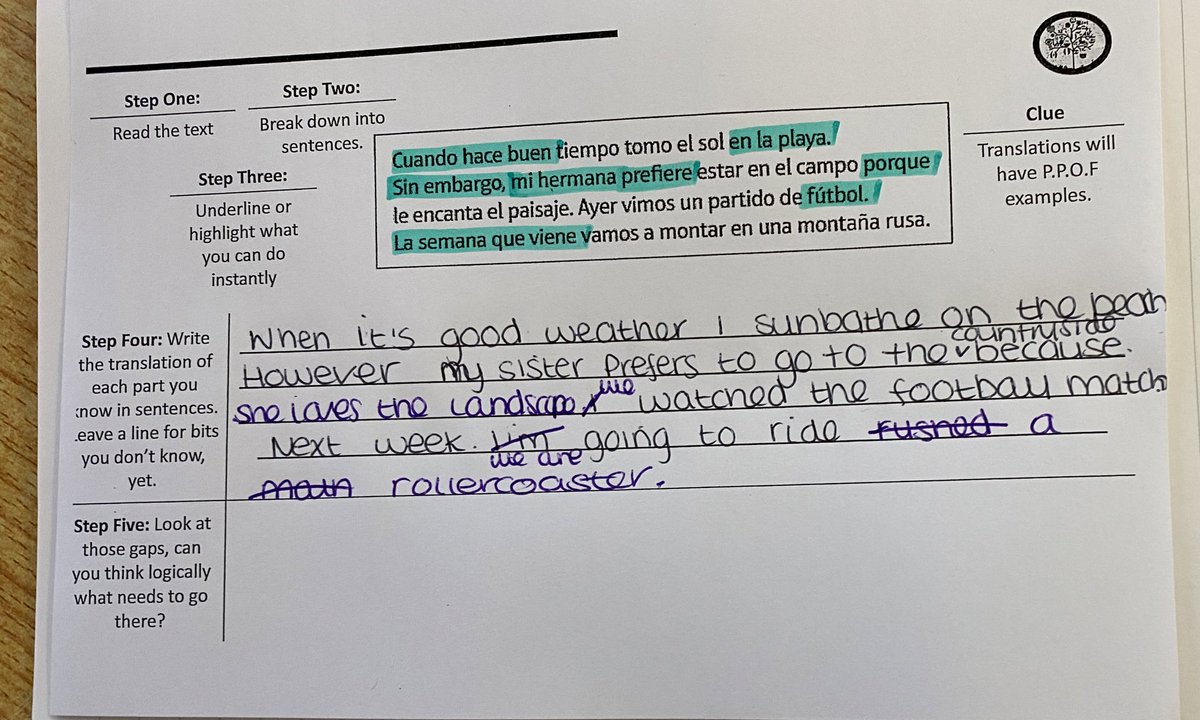 Step One:
Read the text
Step Two:
Break down into
sentences.
Step Three:
Underline or
highlight what
you can do
instantly
Cuando hace buen tiempo tomo el sol en la playa.
Sin embargo, mi hermana prefiere estar en el campo porque
le encanta el paisaje. Ayer vimos un partido de fútbol.
La semana que viene vamos a montar en una montaña rusa.
Clue
Translations will
have P.P.O.F
examples.
Step Four: Write
the translation of
each part you
know in sentences.
eave a line for bits
you don't know,
yet.
When it's good weather I sunbathe on the beach
countryside
However my sister prefers to go to the because.
we
she loves the landscape watched the football match
Next week. I'm going to ride rushed a
we are
rollercoaster.
Step Five: Look at
those gaps, can
you think logically
what needs to go
there?